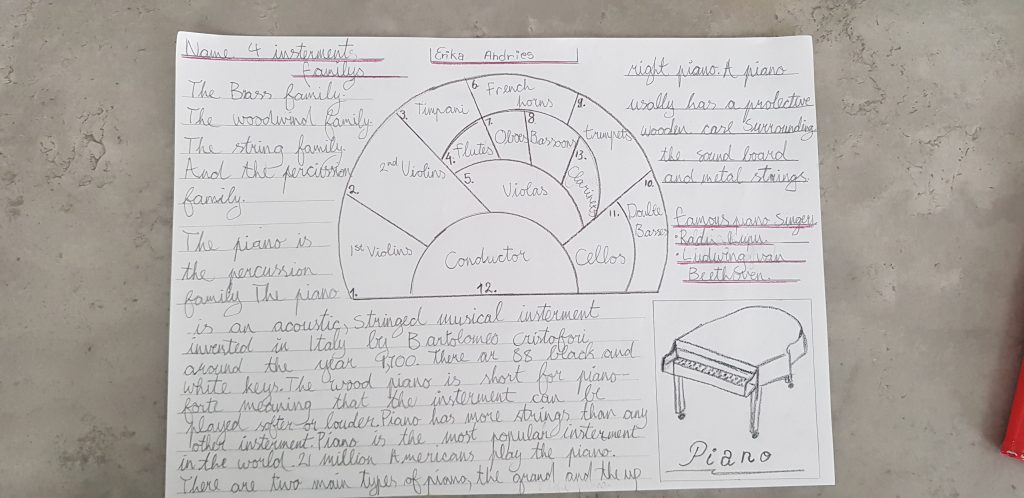 Name 4 insterments
Familys
Erika Andries
The Brass family.
The woodwind family.
The string family
And the percission
family.
The piano is
the percussion
family The piano
is an acoustic, stringed musical insterment
invented in Italy by Bartolomeo Cristofori
around the year 1,700. There ar 88 black and
white keys. The wood piano is short for piano-
forte meaning that the insterment can be
played softer or louder. Piano has more strings than any
other insterment. Piano is the most popular insterment
in the world. 21 million Americans play the piano.
There are two main types of piano, the grand and the up
right piano. A piano
usally has a protective
wooden case Surrounding
the sound board
and metal strings.
famous piano Singers
• Radu Lupu.
• Ludwing van
Beethoven.
1.
1st Violins
2.
2nd Violins
3.
Timpani
4.
Flutes
5.
Violas
6.
French
horns
7.
Oboes
8.
Bassoon
9.
trumpets
10.
Double
Basses
11.
Cellos
12.
Conductor
13.
Clarinets
Piano